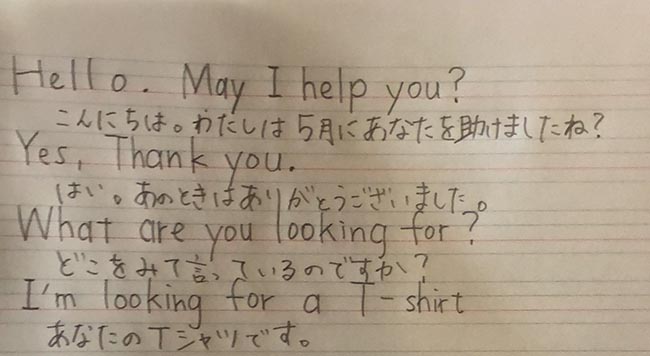 Hello. May I help you?
こんにちは。わたしは5月にあなたを助けましたね?
Yes, Thank you.
はい。あのときはありがとうございました。
What are you looking for?
どこをみて言っているのですか?
I'm looking for a T-shirt
あなたのTシャツです。